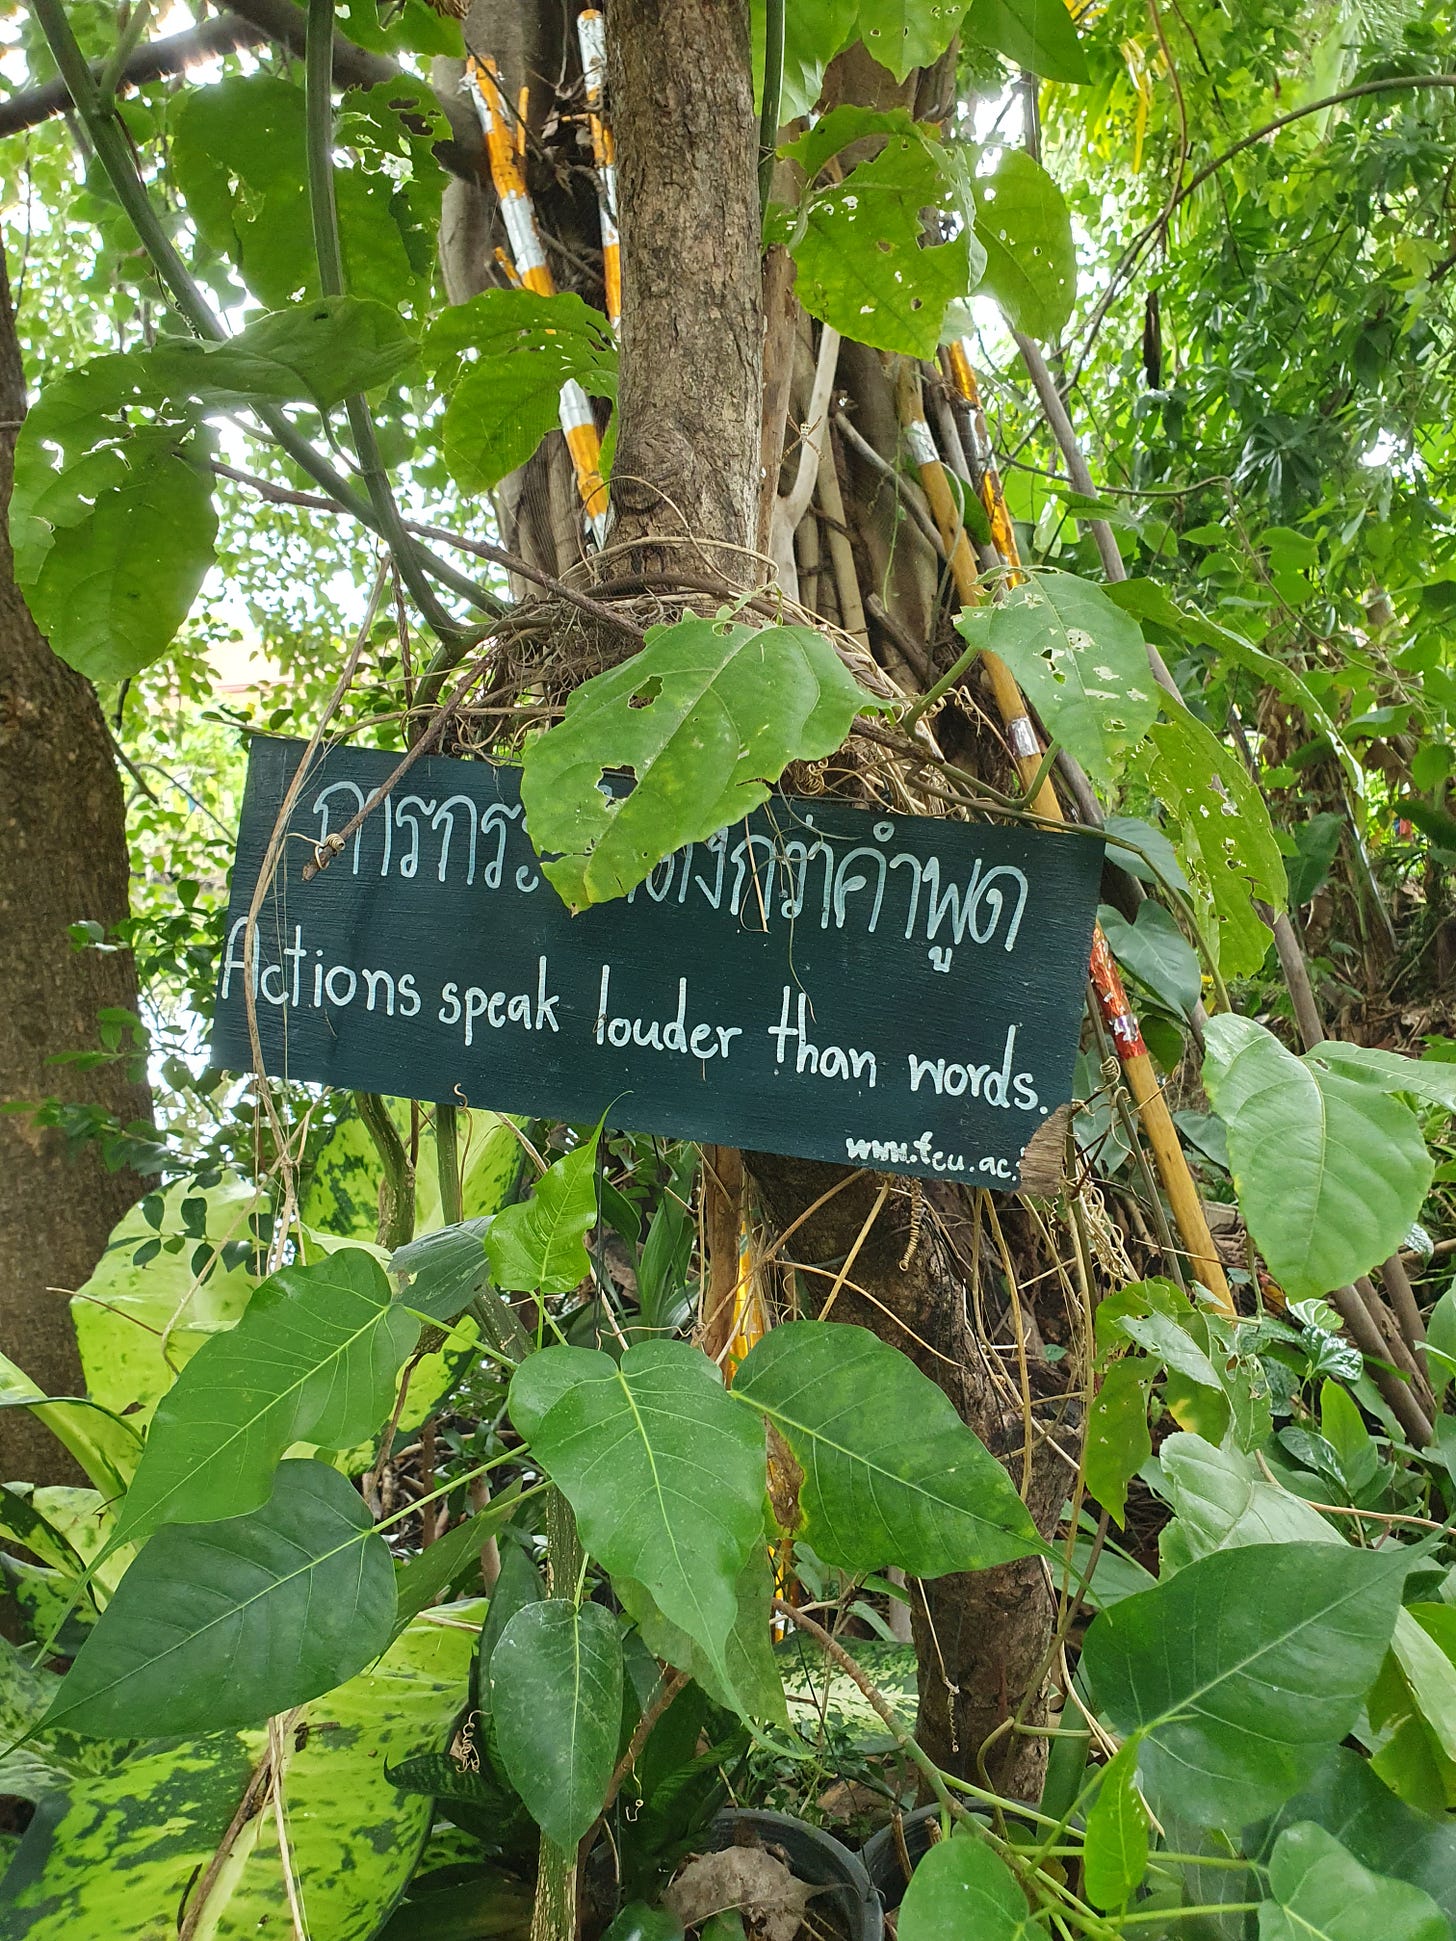 การกระ ดังกว่าคำพูด
Actions speak louder than words.
www.tcu.ac.